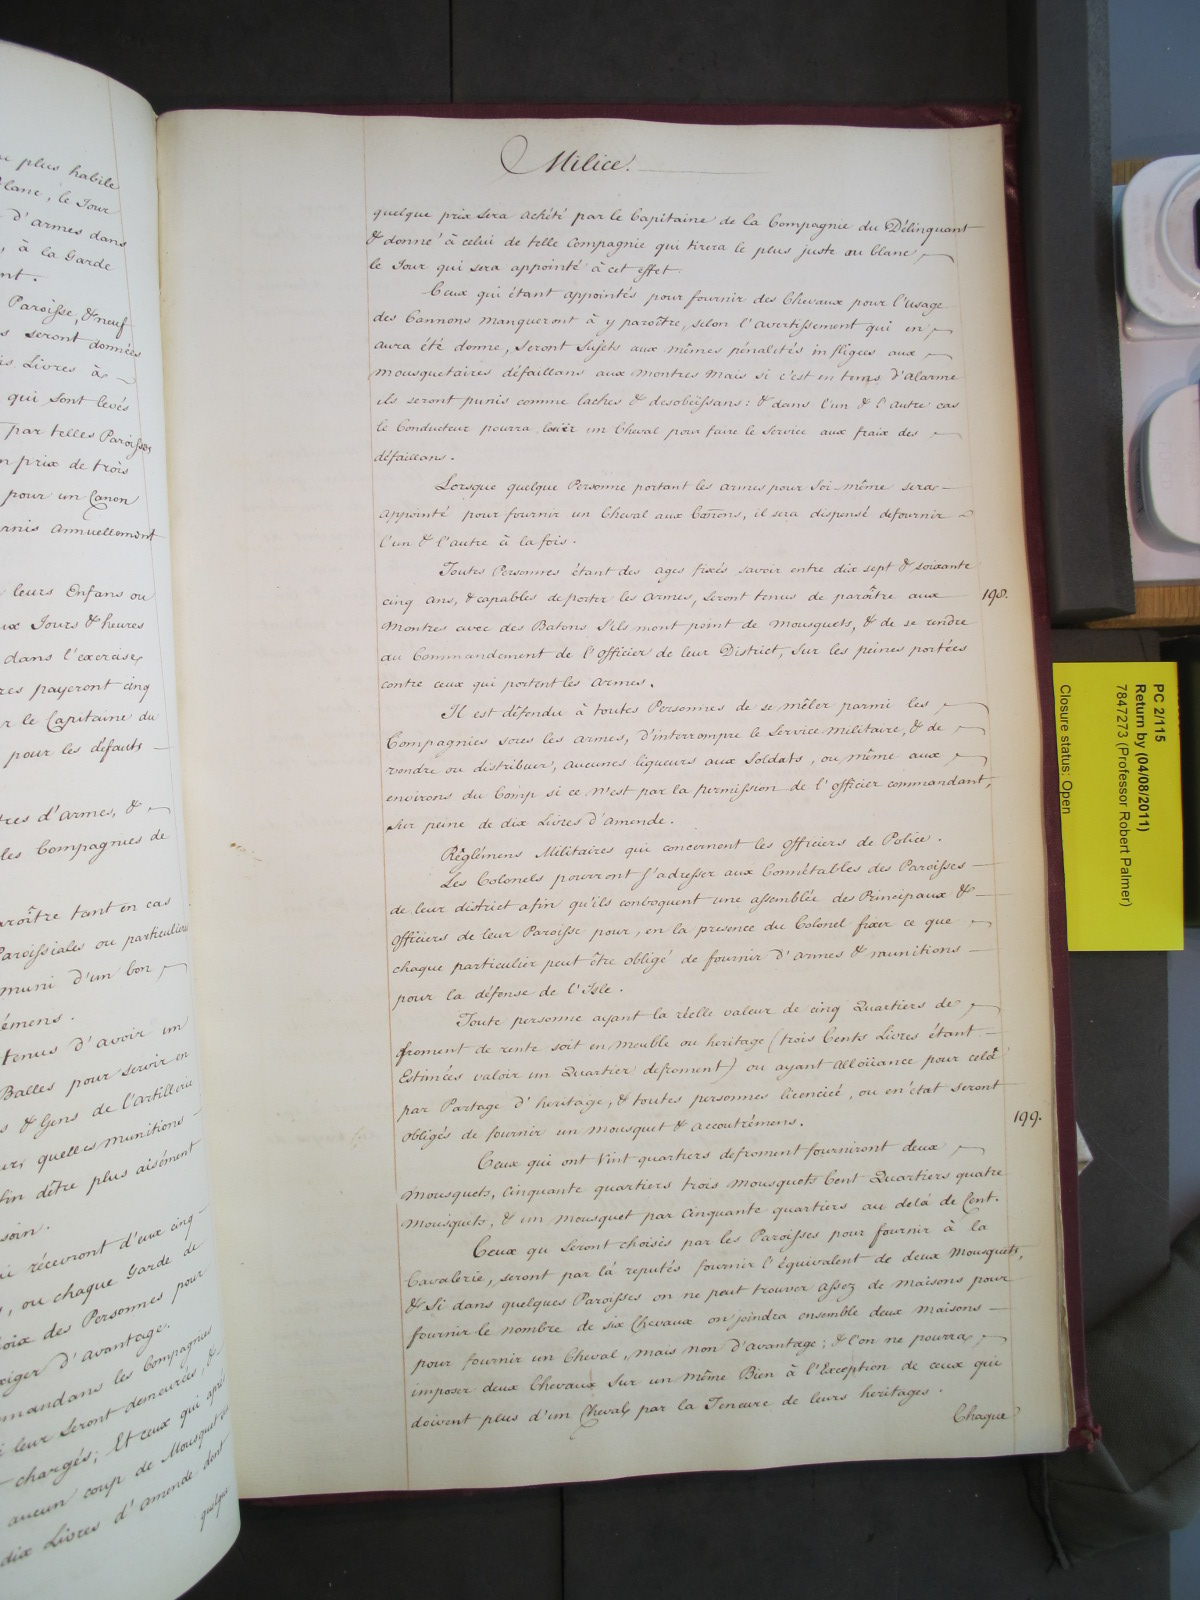 u plus habile
lanc, le Jour
d'armes dans
, à la Garde
nt.
Paroisse, & neuf
s seront données
is Livres à
qui sont levés
par telles Paroisses
n prix de trois
pour un Canon
rnis annuellement
leurs Enfans ou
ux Jours & heures
dans l'exercise,
res payeront cinq
r le Capitaine du
pour les défauts
res d'armes, &
les Compagnies de
aroître tant en cas
Paroissiales ou particulières
muni d'un bon
émens.
tenus d'avoir un
Balles pour servir en
s & Gens de l'artillerie
ur, quelles munitions
fin d'être plus aisément
soin.
ui récevront d'eux cinq
, ou chaque Garde de
oix des Personnes pour
xiger d'avantage.
mandans les Compagnies
i leur seront demeurés, &
chargés; Et ceux qui après
aucun coup de Mousquet
dix Livres d'amende dont
quelque
Milice.
quelque prix sera achété par le Capitaine de la Compagnie du Délinquant
& donné à celui de telle Compagnie qui tirera le plus juste au blanc,
le Jour qui sera appointé à cet effet.
Ceux qui étant appointés pour fournir des Chevaux pour l'usage
des Cannons manqueront à y paroître, selon l'avertissement qui en
aura été donne, seront sujets aux mêmes pénalités infligees aux
mousquetaires défaillans aux montres mais si c'est en tems d'alarme
ils seront punis comme laches & desobeïssans: & dans l'un & l'autre cas
le Conducteur pourra loüer un Cheval pour faire le service aux fraix des
défaillans.
Lorsque quelque Personne portant les armes pour soi-même sera
appointé pour fournir un Cheval aux Canons, il sera dispensé defournir
l'un & l'autre à la fois.
Toutes Personnes étant des ages fixés savoir entre dix sept & soixante
cinq ans, & capables de porter les armes, seront tenus de paroître aux
198.
Montres avec des Batons s'ils n'ont point de mousquets, & de se rendre
au Commandement de l'officier de leur District, sur les peines portées
contre ceux qui portent les armes.
Il est défendu à toutes Personnes de se mêler parmi les
Compagnies sous les armes, d'interrompre le service militaire, & de
vendre ou distribuer, aucunes liqueurs aux Soldats, ou même aux
environs du Camp si ce n'est par la permission de l'officier commandant,
sur peine de dix Livres d'amende.
Réglémens Militaires qui concernent les officiers de Police.
Les Colonels pourront s'adresser aux Connétables des Paroisses
de leur district afin qu'ils convoquent une assemblée des Principaux &
officiers de leur Paroisse pour, en la presence du Colonel fixer ce que
chaque particulier peut être obligé de fournir d'armes & munitions
pour la défense de l'Isle.
Toute personne ayant la réelle valeur de cinq Quartiers de
froment de rente soit en meuble ou heritage (trois Cents Livres étant
Estimées valoir un Quartier defroment) ou ayant alloüance pour celà
par Partage d'heritage, & toutes personnes licenciée, ou en état seront
199.
obligés de fournir un mousquet & accoutrémens.
Ceux qui ont Vint quartiers defroment fourniront deux
mousquets, Cinquante quartiers trois mousquets Cent Quartiers quatre
mousquets, & un mousquet par Cinquante quartiers au delà de Cent.
Ceux qu seront choisis par les Paroisses pour fournir à la
Cavalerie, seront par là reputés fournir l'équivalent de deux mousquets,
& si dans quelques Paroisses on ne peut trouver assez de maisons pour
fournir le nombre de six Chevaux on joindra ensemble deux maisons
pour fournir un Cheval, mais non d'avantage; & l'on ne pourra
imposer deux Chevaux sur un même Bien à l'Exception de ceux qui
doivent plus d'un Cheval par la Teneure de leurs heritages.
Chaque
PC 2/115
Return by (04/08/2011)
7847273 (Professor Robert Palmer)
Closure status: Open